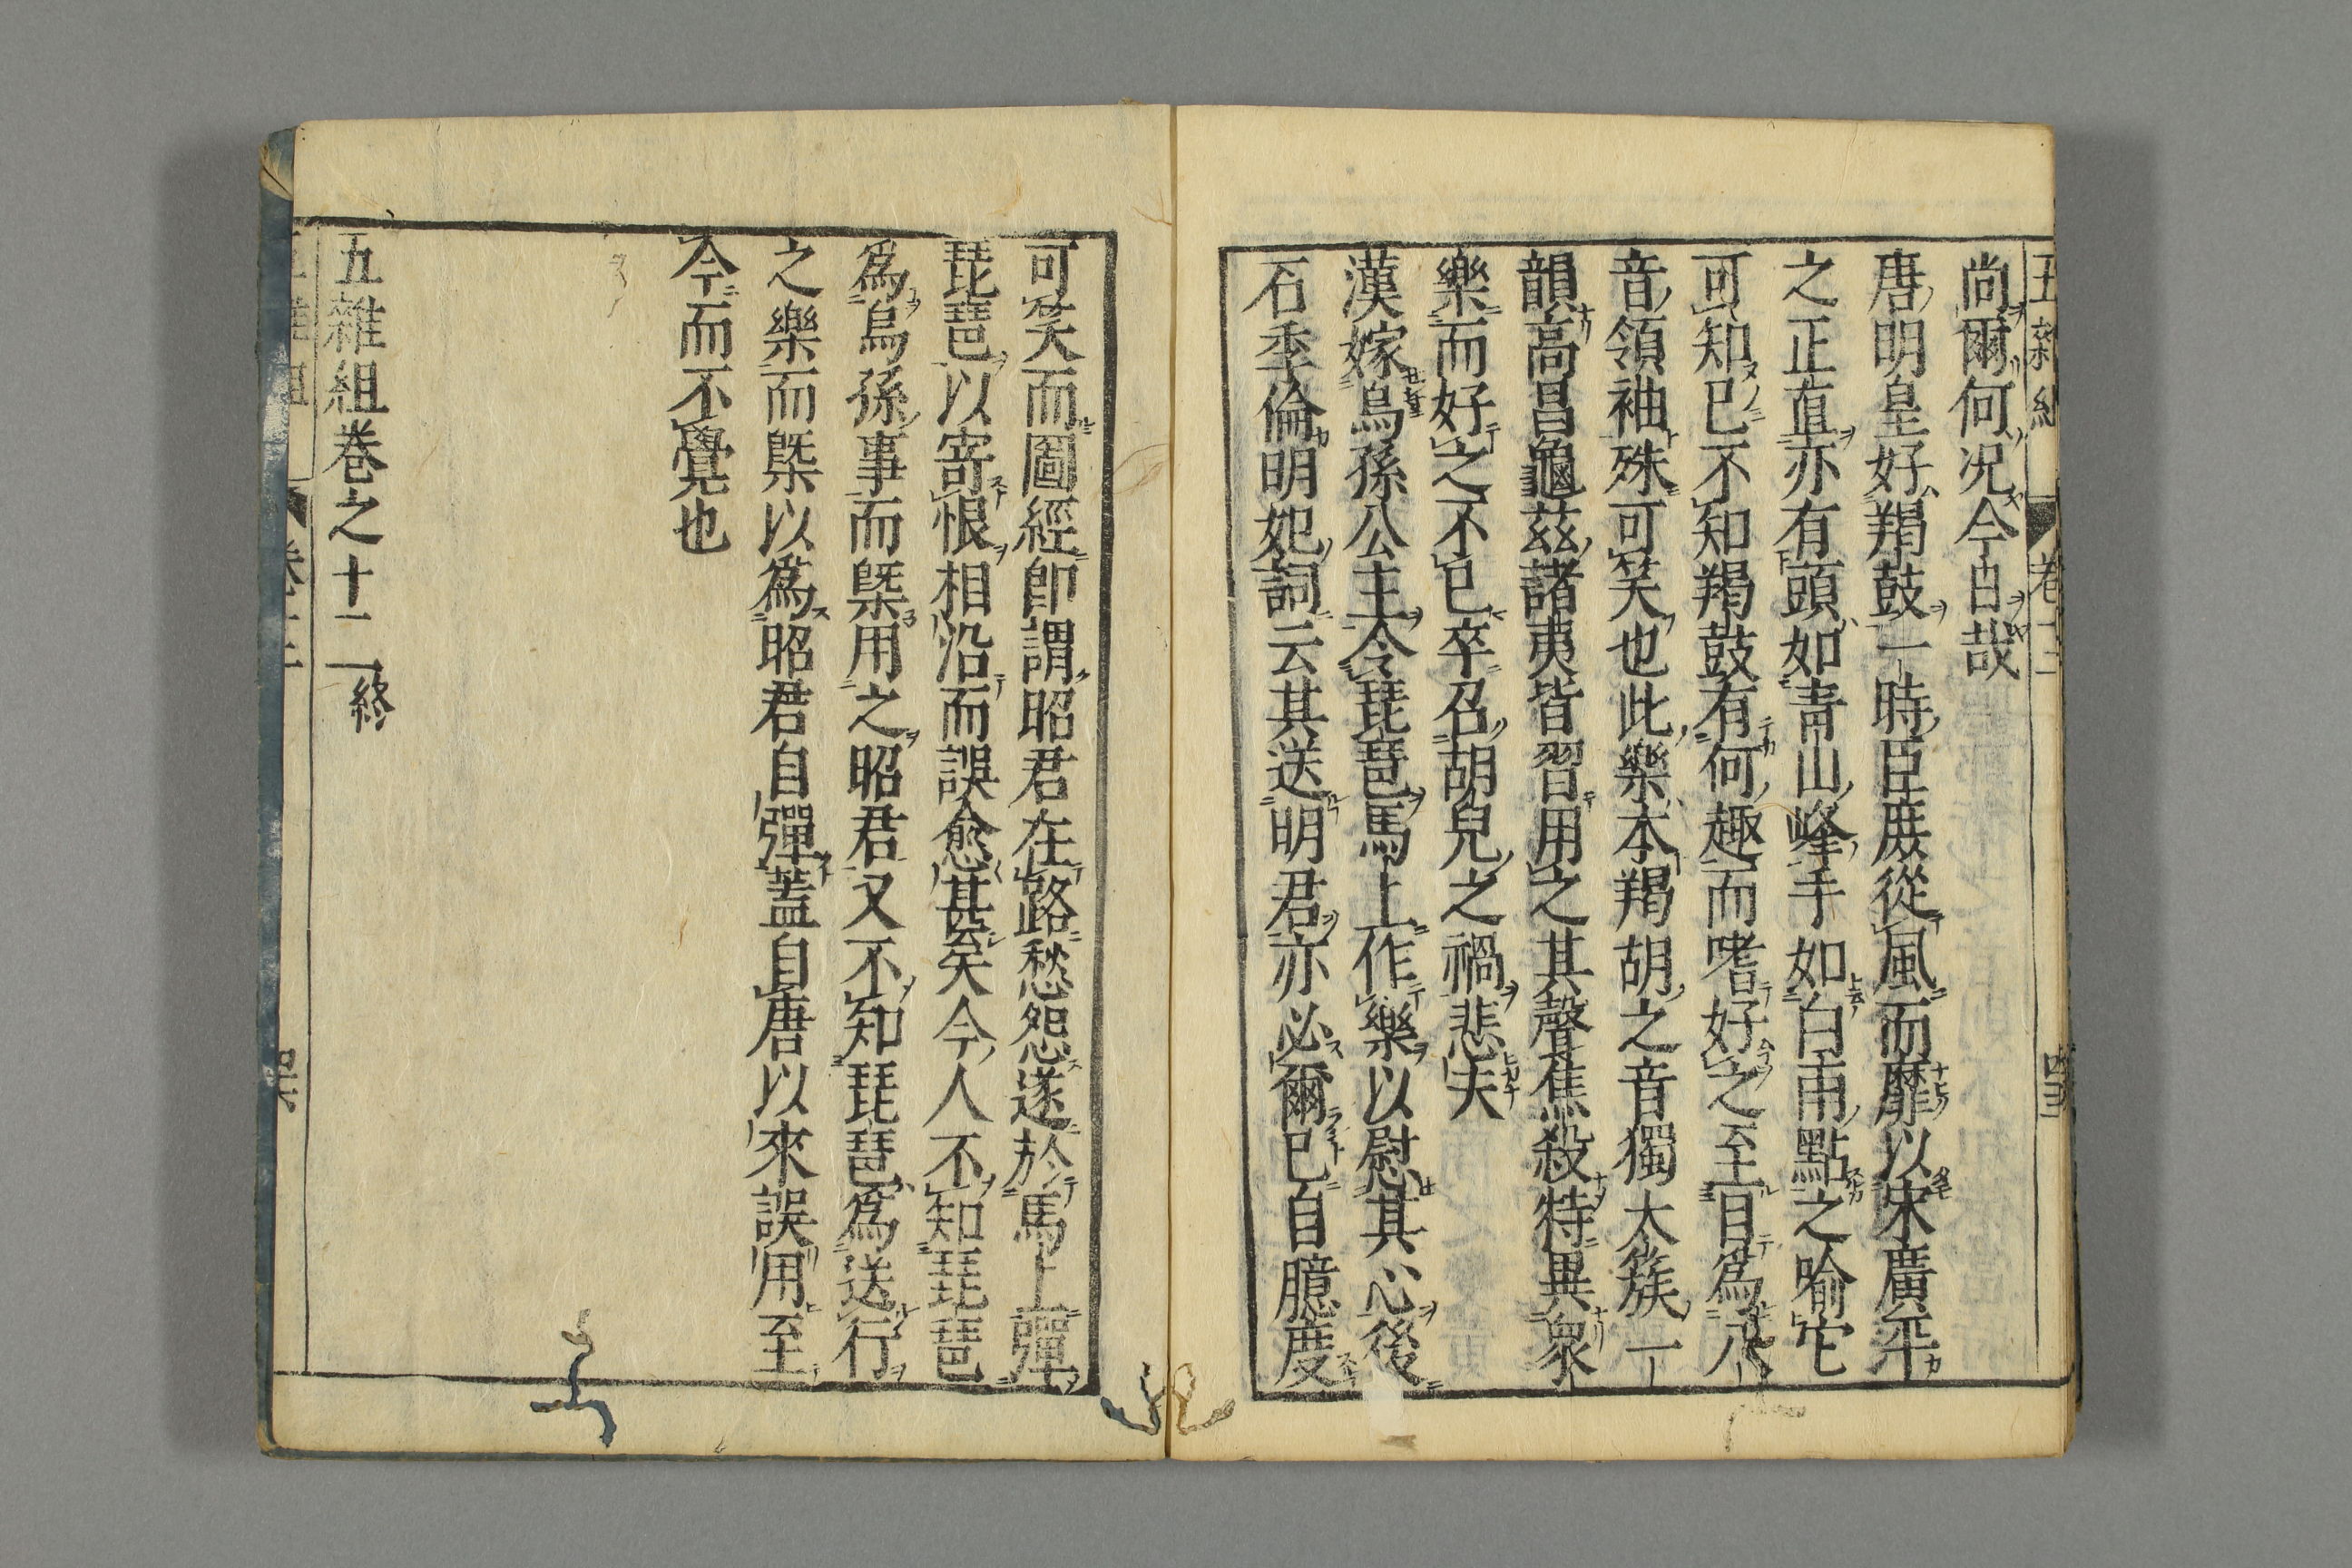 尚爾何况今日哉
唐明皇好羯鼓一時臣庶從風而靡以宋廣平
之正直亦有頭如青山峰手如白雨點之喻它
可知已不知羯鼓有何趣而嗜好之至目爲八
音領袖殊可笑也此樂本羯胡之音獨太簇一
韻高昌龜茲諸夷皆習用之其聲焦殺特異衆
樂而好之不已卒召胡兒之禍悲夫
漢嫁烏孫公主令琵琶馬上作樂以慰其心後
石季倫明妃詞云其送明君亦必爾已自臆度
可笑而圖經即謂昭君在路愁怨遂於馬上彈
琵琶以寄恨相沿而誤愈甚矣今人不知琵琶
爲烏孫事而槩用之昭君又不知琵琶爲送行
之樂而槩以爲昭君自彈蓋自唐以來誤用至
今而不覺也
五雜組巻之十二終